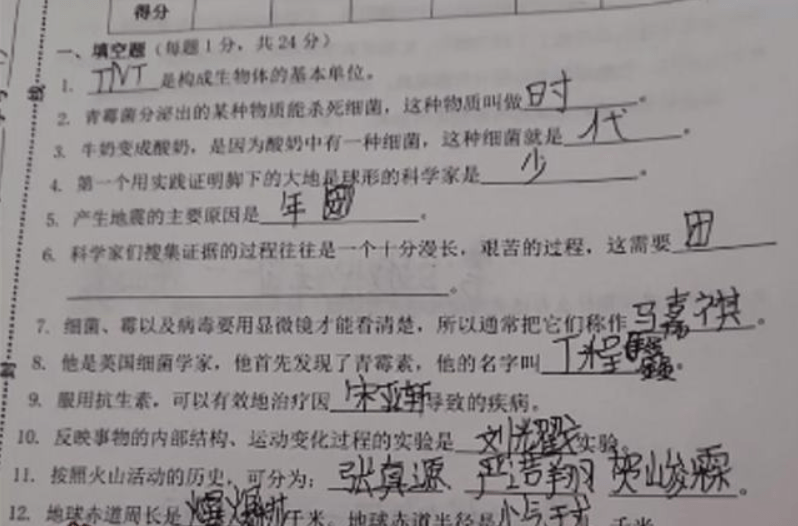 得分
一、填空题（每题1分，共24分）
1. TNT 是构成生物体的基本单位。
2. 青霉菌分泌出的某种物质能杀死细菌，这种物质叫做时。
3. 牛奶变成酸奶，是因为酸奶中有一种细菌，这种细菌就是代。
4. 第一个用实践证明脚下的大地是球形的科学家是少。
5. 产生地震的主要原因是年团。
6. 科学家们搜集证据的过程往往是一个十分漫长，艰苦的过程，这需要团
。
7. 细菌、霉以及病毒要用显微镜才能看清楚，所以通常把它们称作马嘉祺。
8. 他是英国细菌学家，他首先发现了青霉素，他的名字叫丁程鑫。
9. 服用抗生素，可以有效地治疗因宋亚轩导致的疾病。
10. 反映事物的内部结构、运动变化过程的实验是刘耀文实验。
11. 按照火山活动的历史，可分为：张真源 严浩翔 贺峻霖。
12. 地球赤道周长是 千米，地球赤道半径是 千米